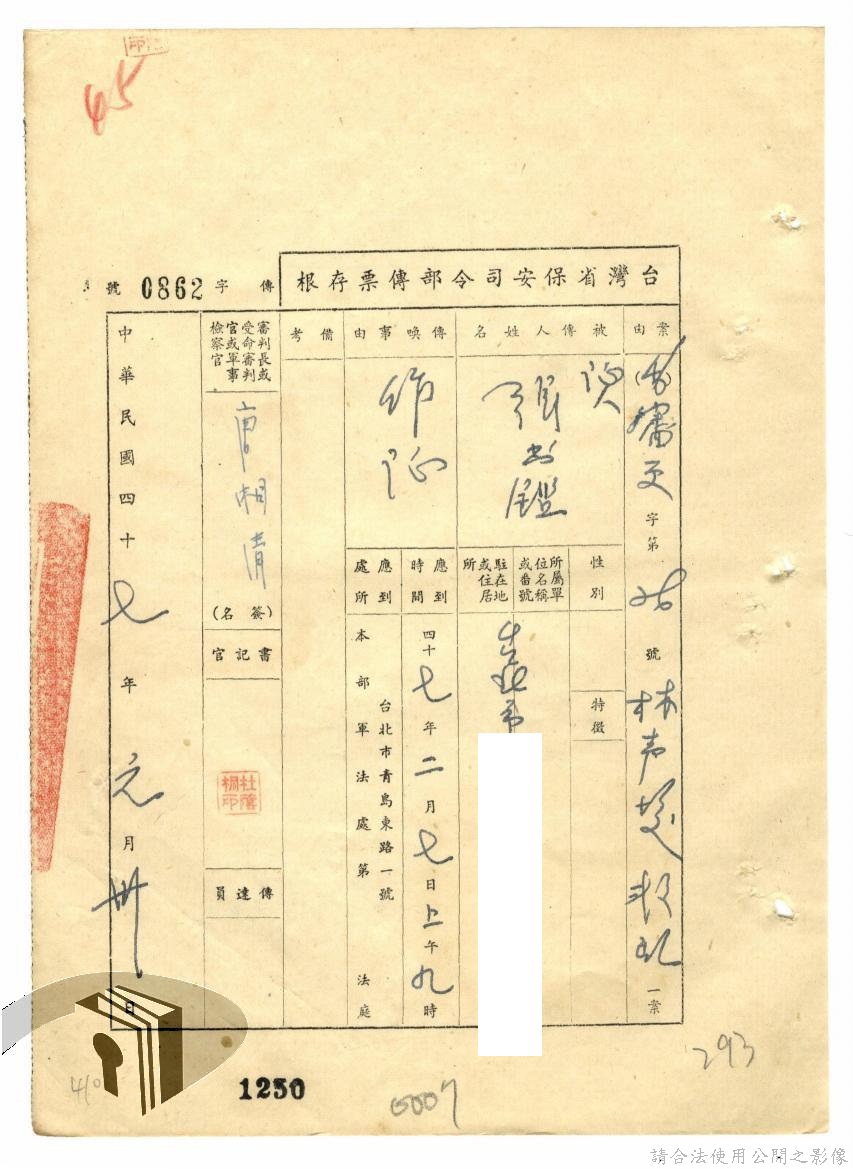 45
台灣省保安司令部傳票存根
傳字 0862 號
案由
審更字第
號
一案
被傳人姓名
張書鑑
性別
特徵
所屬單位名稱或番號
駐在地或住居所
嘉義市
傳喚事由
作証
應到時間
四十七年二月七日上午九時
應到處所
台北市青島東路一號
本部軍法處第 法庭
備考
審判長或受命審判官或軍事檢察官
曹湘清
(簽名)
書記官
傳達員
中華民國四十七年元月卅日
1250
0007
293
410
請合法使用公開之影像